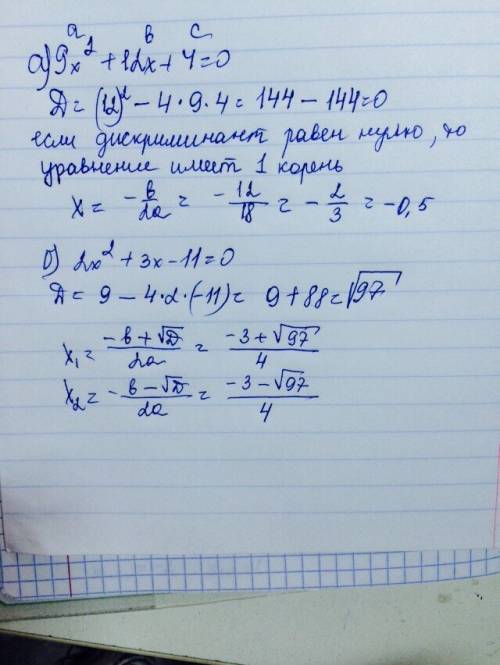 a b c
а) 9x² + 12x + 4 = 0
D = (12)² − 4 · 9 · 4 = 144 − 144 = 0
если дискриминант равен нулю, то
уравнение имеет 1 корень
x = −b/2a = −12/18 = −2/3 = −0,5
б) 2x² + 3x − 11 = 0
D = 9 − 4 · 2 · (−11) = 9 + 88 = √97
x₁ = (−b + √D)/2a = (−3 + √97)/4
x₂ = (−b − √D)/2a = (−3 − √97)/4